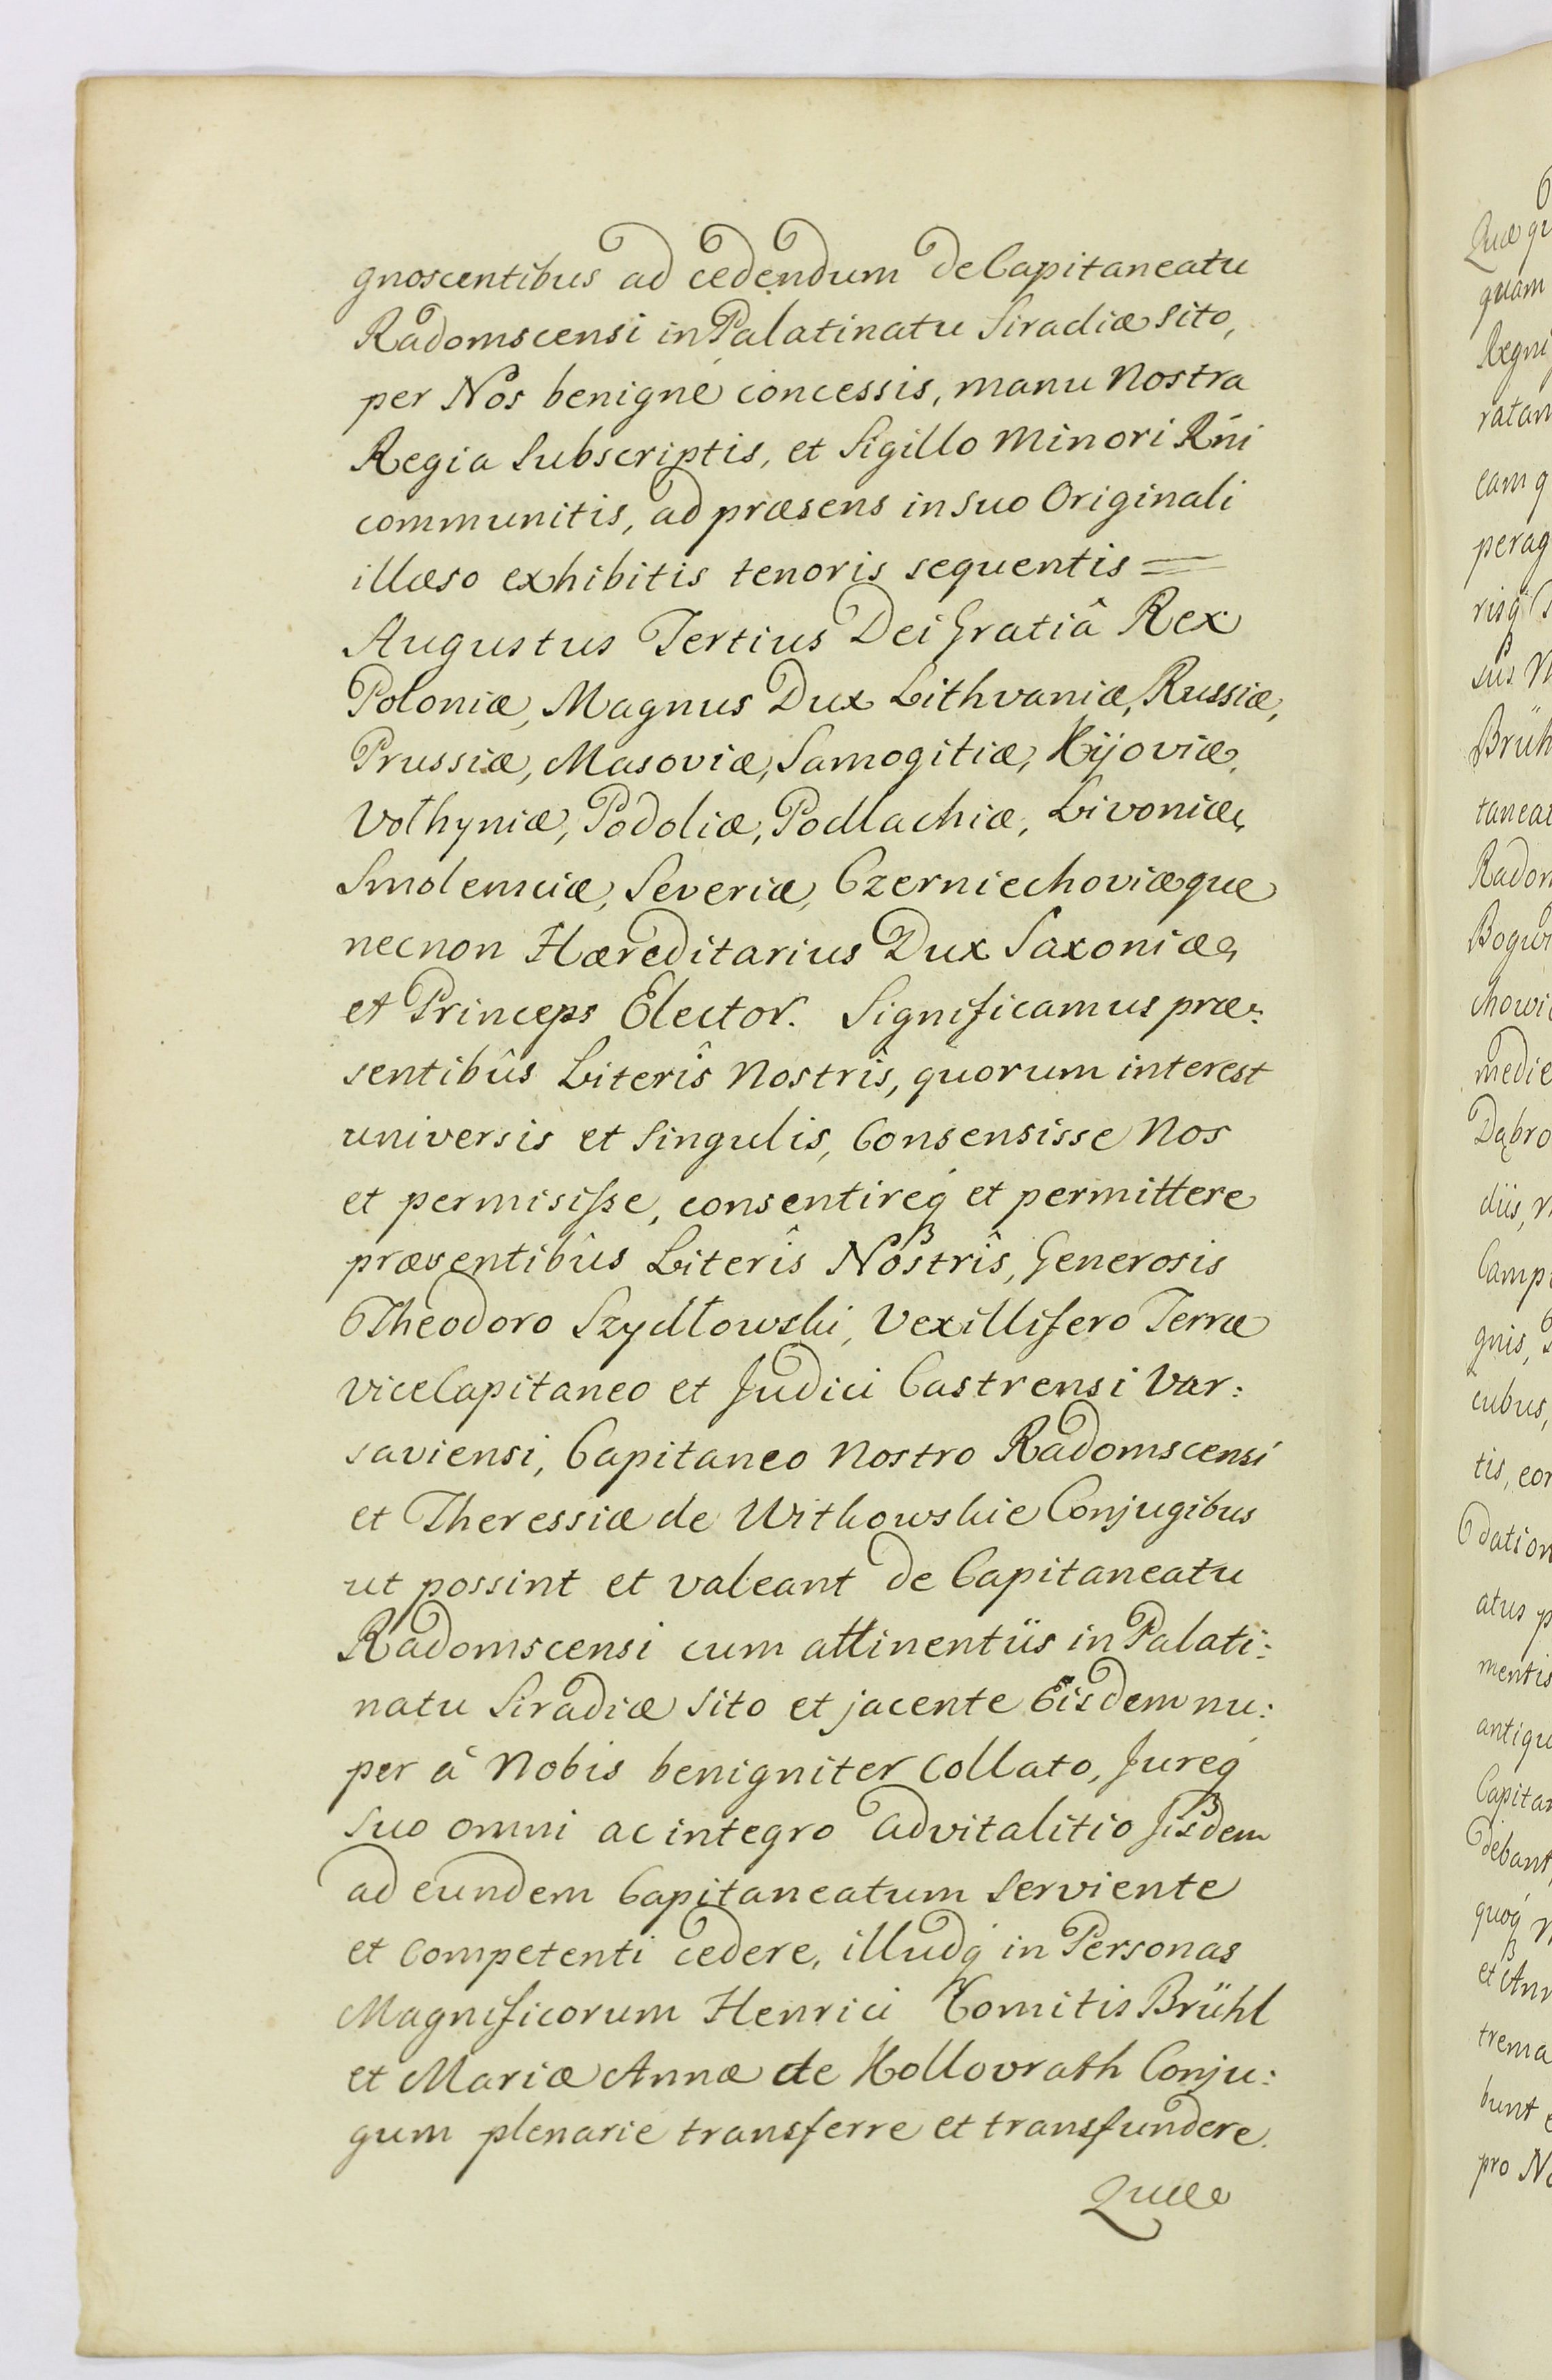 gnoscentibus ad cedendum de Capitaneatu
Radomscensi in Palatinatu Siradiæ sito,
per Nos benigne concessis, manu Nostra
Regia Subscriptis, et Sigillo Minori Rńi
communitis, ad præsens in suo Originali
illæso exhibitis tenoris sequentis =
Augustus Tertius Dei Gratiâ Rex
Poloniæ, Magnus Dux Lithvaniæ, Russiæ,
Prussiæ, Masoviæ, Samogitiæ, Kijoviæ,
Volhyniæ, Podoliæ, Podlachiæ, Livoniæ,
Smolensciæ, Severiæ, Czerniechoviæque
necnon Hæreditarius Dux Saxoniæ,
et Princeps Elector. Significamus præ:
sentibûs Literîs Nostrîs, quorum interest
universis et Singulis, Consensisse Nos
et permisisse, consentireq́ et permittere
præsentibûs Literîs Nostrîs, Generosis
Theodoro Szydłowski, Vexillifero Terræ
ViceCapitaneo et Judici Castrensi Var:
saviensi, Capitaneo Nostro Radomscensi
et Theressiæ de Witkowskie Conjugibus
ut possint et valeant de Capitaneatu
Radomscensi cum attinentiis in Palati:
natu Siradiæ sito et jacente Eisdem nu:
per à Nobis benigniter collato, Jureq́
Suo omni ac integro advitalitio Jisdem
ad eundem Capitaneatum Serviente
et Competenti cedere, illudq́ in Personas
Magnificorum Henrici Comitis Brühl
et Mariæ Annæ de Kollovrath Conju:
gum plenarie transferre et transfundere.
Quæ
Quæ qu
quam
Regni
ratam
eam q
perag
risq́
Brüh
tanea
Radom
Bogwi
chowi
medie
Dąbro
diis,
Camp
gnis,
cubus,
tis, con
dation
atus p
mentis
antiqu
Capitan
debant
quoq́
et Ann
trema
bunt
pro No